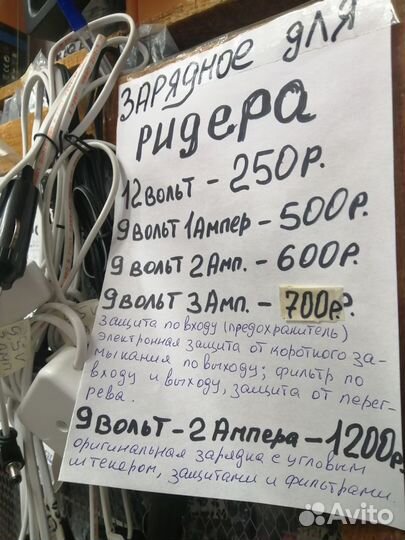 ЗАРЯДНОЕ ДЛЯ
РИДЕРА
12 ВОЛЬТ - 250Р.
9 ВОЛЬТ 1 АМПЕР - 500Р.
9 ВОЛЬТ 2 АМП. - 600Р.
9 ВОЛЬТ 3 АМП. - 700Р.
Защита по входу (предохранитель)
электронная защита от короткого за-
мыкания по выходу; фильтр по
входу и выходу, защита от перег-
рева.
9 ВОЛЬТ - 2 АМПЕРА - 1200Р.
оригинальная зарядка с угловым
штекером, защитами и фильтрами.
Avito